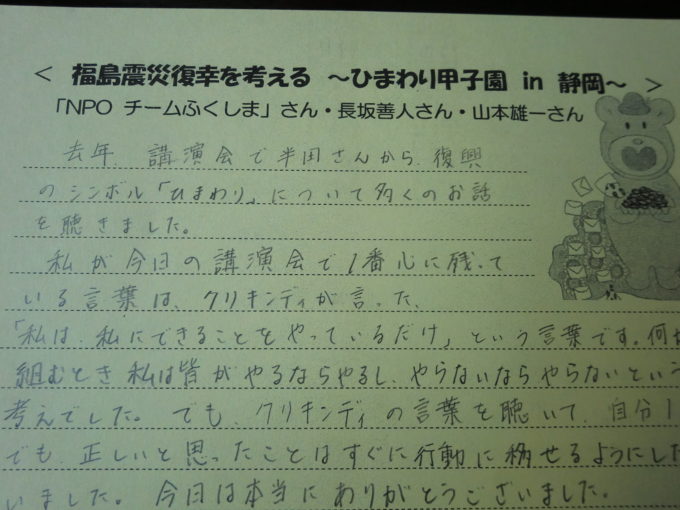 ＜ 福島震災復幸を考える ～ひまわり甲子園 in 静岡～ ＞
「NPO チームふくしま」さん・長坂善人さん・山本雄一さん
去年、講演会で半田さんから、復興
のシンボル「ひまわり」について多くのお話
を聴きました。
私が今日の講演会で1番心に残って
いる言葉は、クリキンディが言った、
「私は、私にできることをやっているだけ」という言葉です。何か
組むとき私は皆がやるならやるし、やらないならやらないという
考えでした。でも、クリキンディの言葉を聴いて、自分1
でも、正しいと思ったことはすぐに行動に移せるようにした
いました。今日は本当にありがとうございました。